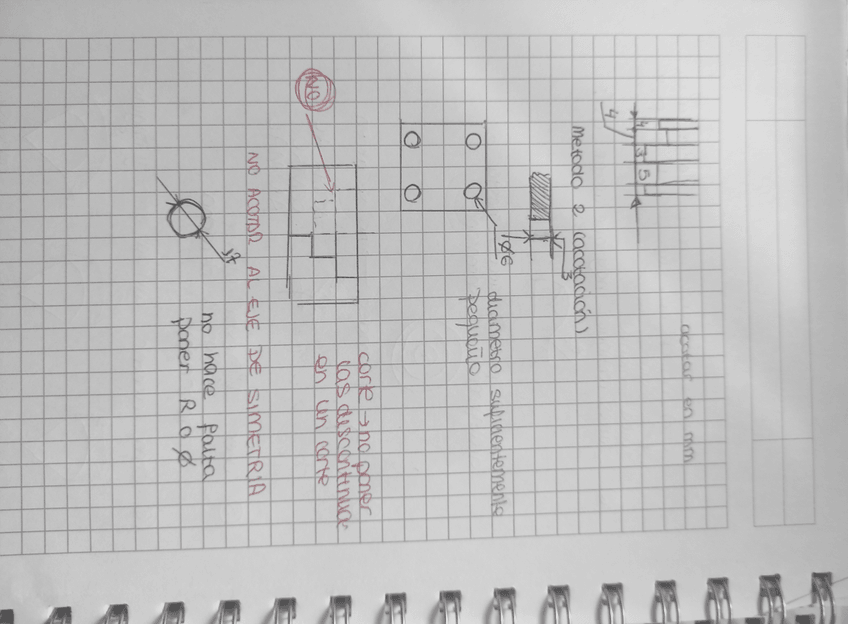 acotar en mm
4 4 3 5
Metodo 2 (acotación)
3
1Ø6
diametro sufinentemente
pequeño
NO
corte → no poner
las discontinua
en un corte
NO ACOTAR AL EJE DE SIMETRIA
no hace falta
poner R o Ø